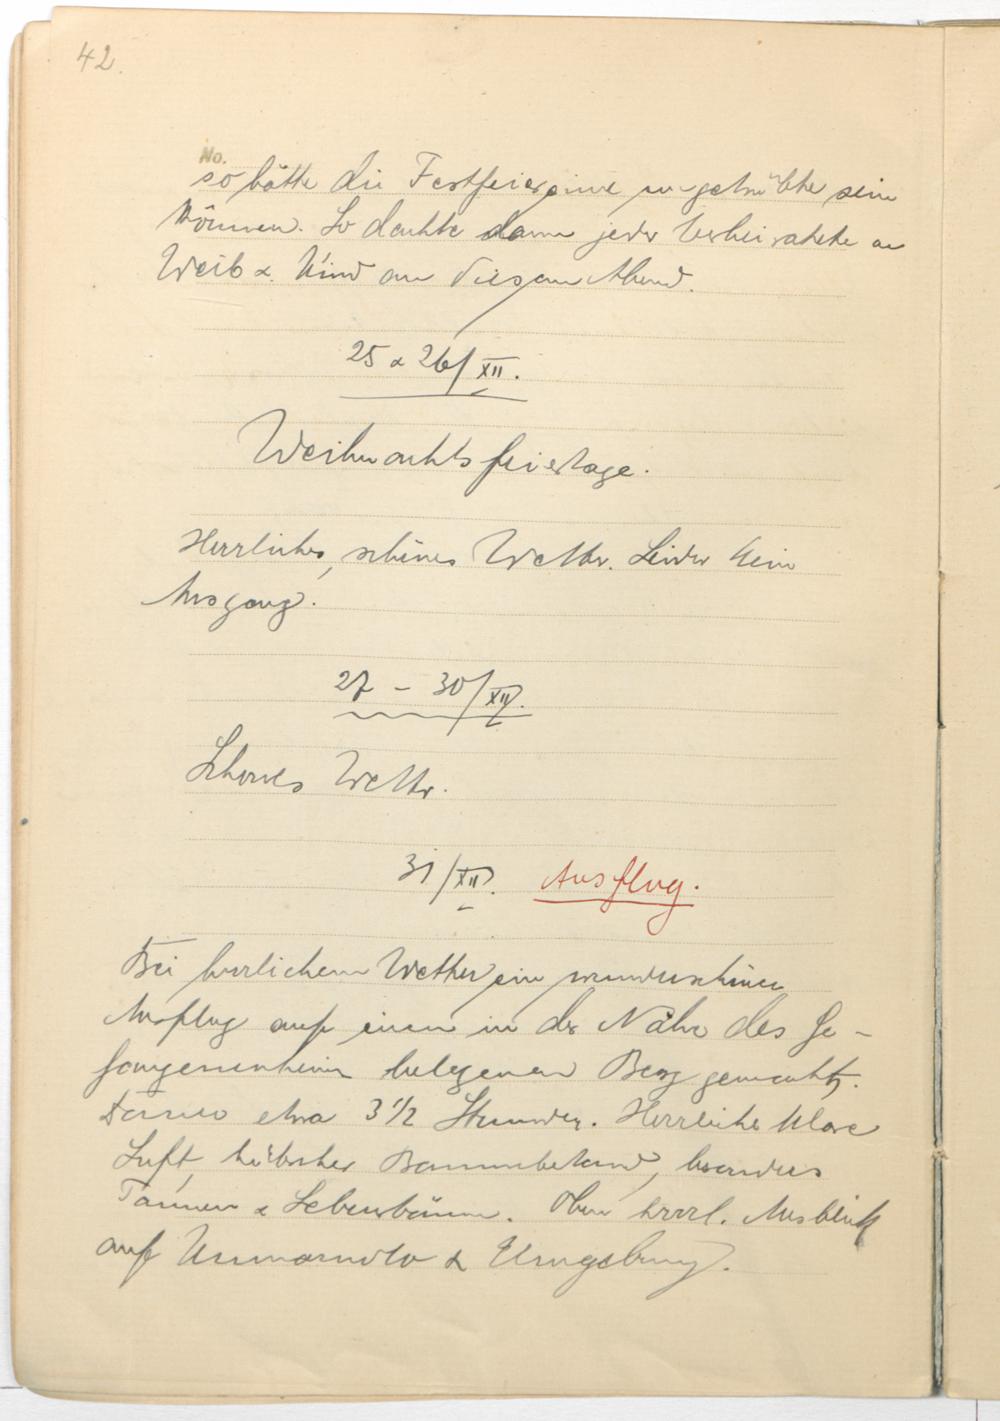 42.
No.
so hätte die Festfeier eine ungetrübte sein
können. So dachte dann jeder Verheiratete an
Weib & Kind an diesem Abend.
25 & 26/XII.
Weihnachtsfeiertage.
Herrliches, schönes Wetter. Leider kein
Ausgang.
27 - 30/XII.
Schönes Wetter.
31/XII. Ausflug.
Bei herrlichem Wetter ein wunderschönen
Ausflug auf einen in der Nähe des Ge-
fangenenheim belegenen Berg gemacht.
Dauer etwa 3 1/2 Stunden. Herrliche klare
Luft, hübscher Baumbestand, besonders
Tannen & Lebensbäume. Oben herrl. Ausblick
auf Kumamoto & Umgebung.